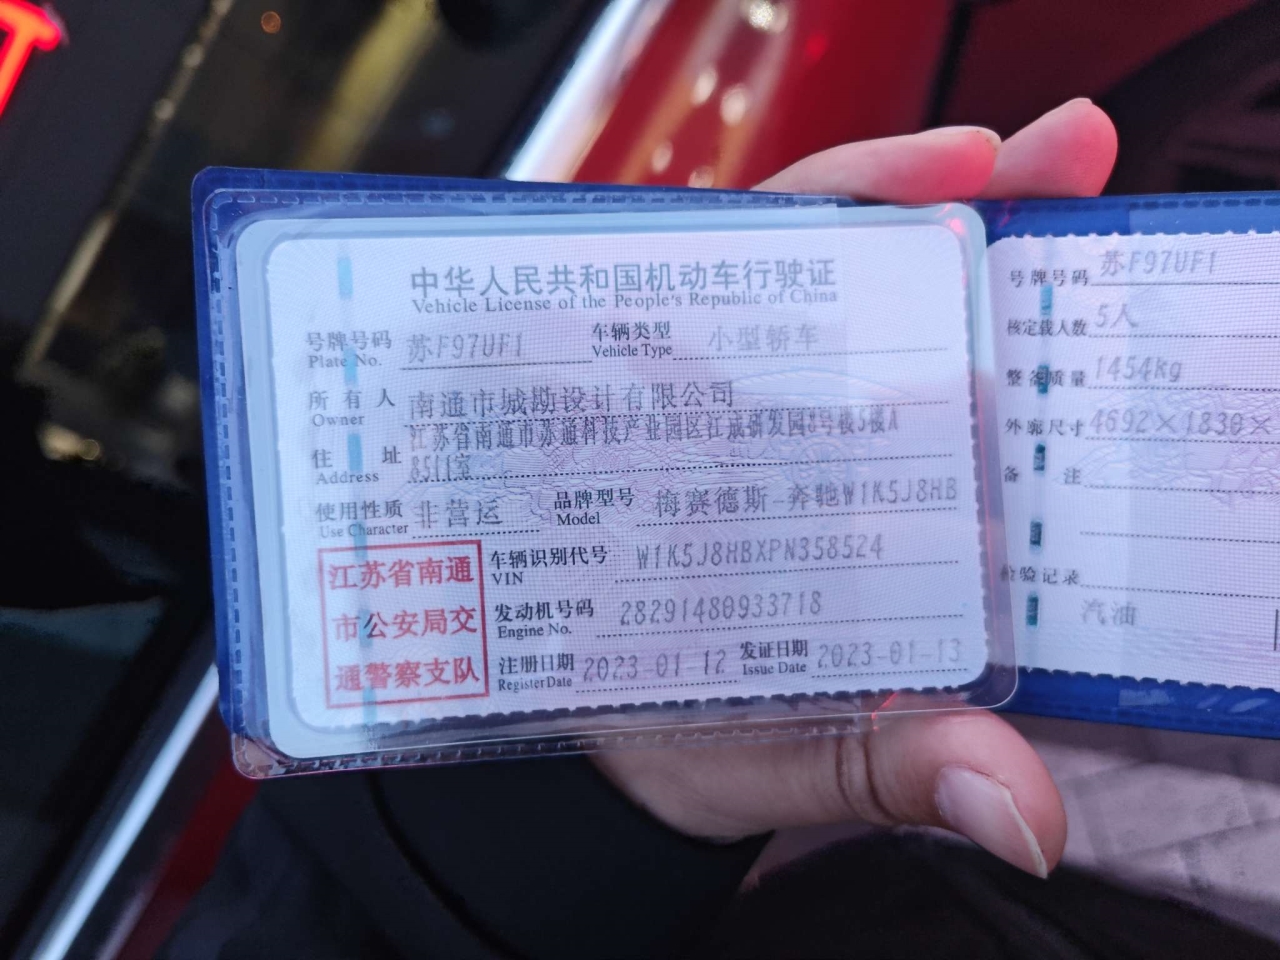 中华人民共和国机动车行驶证
Vehicle License of the People's Republic of China
号牌号码 苏F97UF1 车辆类型 小型轿车
Plate No. Vehicle Type
所有人 南通市城勘设计有限公司
Owner
江苏省南通市苏通科技产业园区江成研发园8号楼5楼A
住址 8511室
Address
使用性质 非营运 品牌型号 梅赛德斯-奔驰W1K5J8HB
Use Character Model
江苏省南通
市公安局交
通警察支队
车辆识别代号 W1K5J8HBXPN358524
VIN
发动机号码 28291480933718
Engine No.
注册日期 2023-01-12 发证日期 2023-01-13
Register Date Issue Date
号牌号码 苏F97UF1
核定载人数 5人
整备质量 1454kg
外廓尺寸 4692×1830×
备注
检验记录
汽油